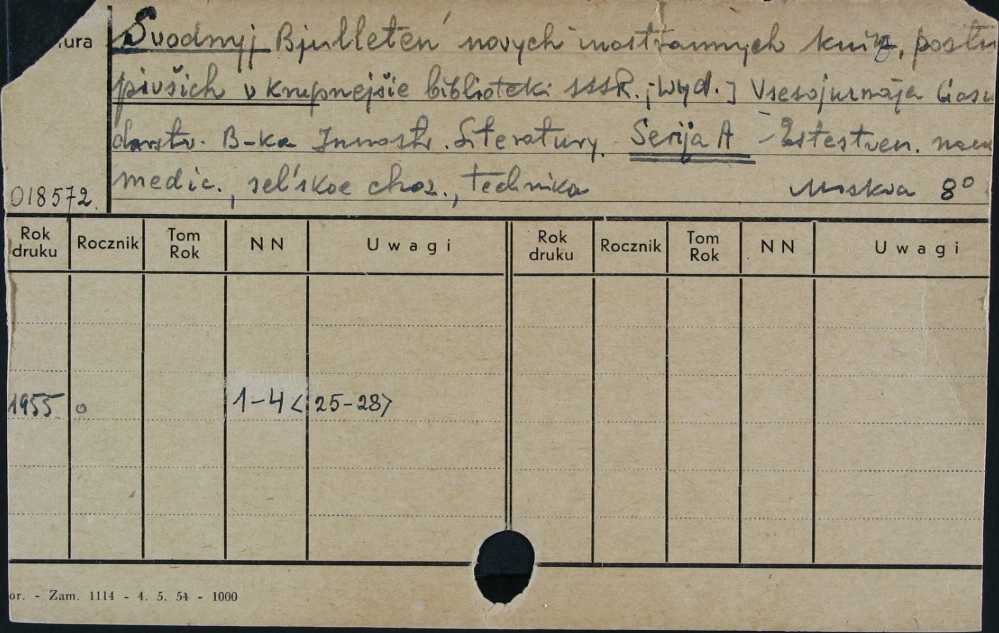 Svodnyj Bjulleteń novych inostrannych knig, postu
pivšich v krupnejšie biblioteki SSSR. [Wyd.] Vsesojuznaja Gosu
darstv. B-ka Inostr. Literatury. Serija A - Estestven. nauk
018572. medic., sel'skoe choz., technika Moskva 8°
Rok druku Rocznik Tom Rok NN Uwagi Rok druku Rocznik Tom Rok NN Uwagi
1955 o 1-4 <25-28>
or. - Zam. 1114 - 4. 5. 54 - 1000